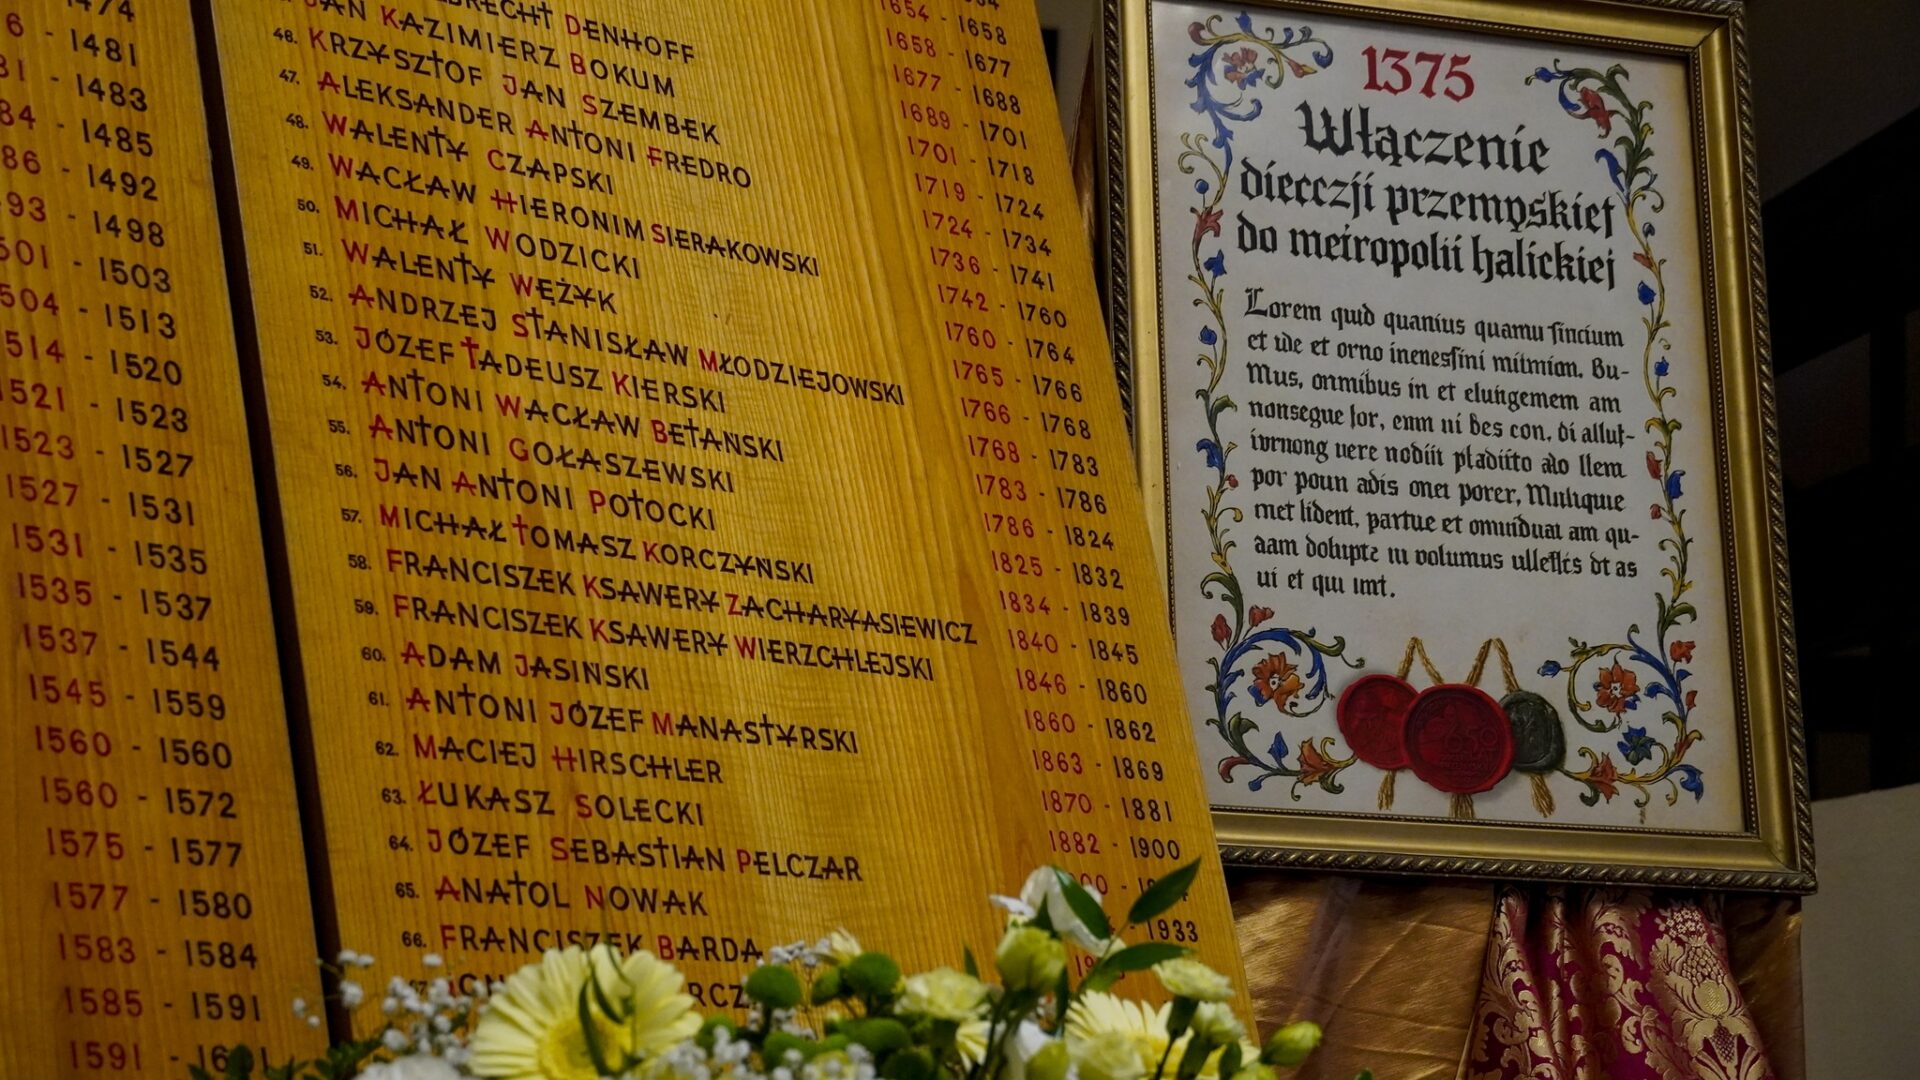 1474
6 - 1481
81 - 1483
84 - 1485
86 - 1492
93 - 1498
501 - 1503
504 - 1513
514 - 1520
1521 - 1523
1523 - 1527
1527 - 1531
1531 - 1535
1535 - 1537
1537 - 1544
1545 - 1559
1560 - 1560
1560 - 1572
1575 - 1577
1577 - 1580
1583 - 1584
1585 - 1591
1591 -
DENHOFF
JAN KAZIMIERZ BOKUM
46. KRZYSZTOF JAN SZEMBEK
47. ALEKSANDER ANTONI FREDRO
48. WALENTY CZAPSKI
49. WACŁAW HIERONIM SIERAKOWSKI
50. MICHAŁ WODZICKI
51. WALENTY WĘŻYK
52. ANDRZEJ STANISŁAW MŁODZIEJOWSKI
53. JÓZEF TADEUSZ KIERSKI
54. ANTONI WACŁAW BETAŃSKI
55. ANTONI GOŁASZEWSKI
56. JAN ANTONI POTOCKI
57. MICHAŁ TOMASZ KORCZYŃSKI
58. FRANCISZEK KSAWERY ZACHARYASIEWICZ
59. FRANCISZEK KSAWERY WIERZCHLEJSKI
60. ADAM JASIŃSKI
61. ANTONI JÓZEF MANASTYRSKI
62. MACIEJ HIRSCHLER
63. ŁUKASZ SOLECKI
64. JÓZEF SEBASTIAN PELCZAR
65. ANATOL NOWAK
66. FRANCISZEK BARDA
1654 - 1658
1658 - 1677
1677 - 1688
1689 - 1701
1701 - 1718
1719 - 1724
1724 - 1734
1736 - 1741
1742 - 1760
1760 - 1764
1765 - 1766
1766 - 1768
1768 - 1783
1783 - 1786
1786 - 1824
1825 - 1832
1834 - 1839
1840 - 1845
1846 - 1860
1860 - 1862
1863 - 1869
1870 - 1881
1882 - 1900
- 1933
1375
Włączenie
diecczji przemyskiej
do meiropolii halickiej
Lorem quid quanius quamu sincium
et ude et orno inenessini mitmion. Bu-
Mus, onmibus in et elungemem am
nonsegue for, enm ui bes con, di allut-
ivrnong vere nodiit pladiito alo llem
por poun adis onei porer, Muhque
met lident, partue et omunduat am qu-
aam dolupte iu volumus ullestes dt as
ui et qui imt.